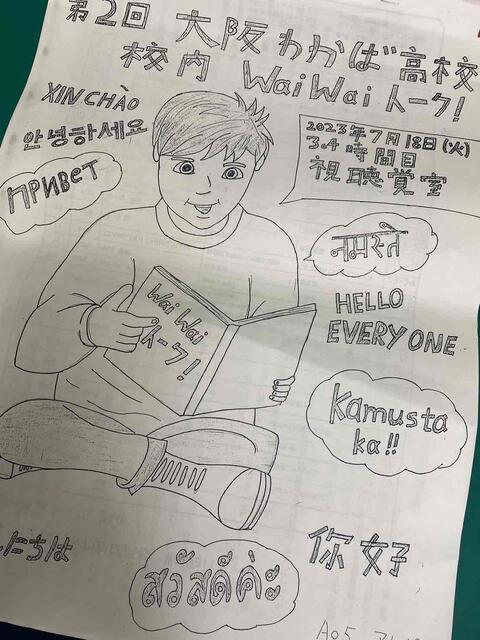 第2回 大阪わかば高校
校内 WaiWaiトーク!
XIN CHÀO
안녕하세요
ПРИВЕТ
2023年7月18日(火)
3.4時間目
視聴覚室
नमस्ते
HELLO
EVERYONE
Wai Wai
トーク!
Kamusta
ka!!
にちは
你好
สวัสดีค่ะ